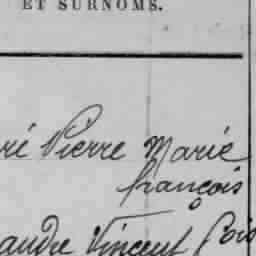 ET SURNOMS.
ré Pierre Marie
françois
andre Vincent